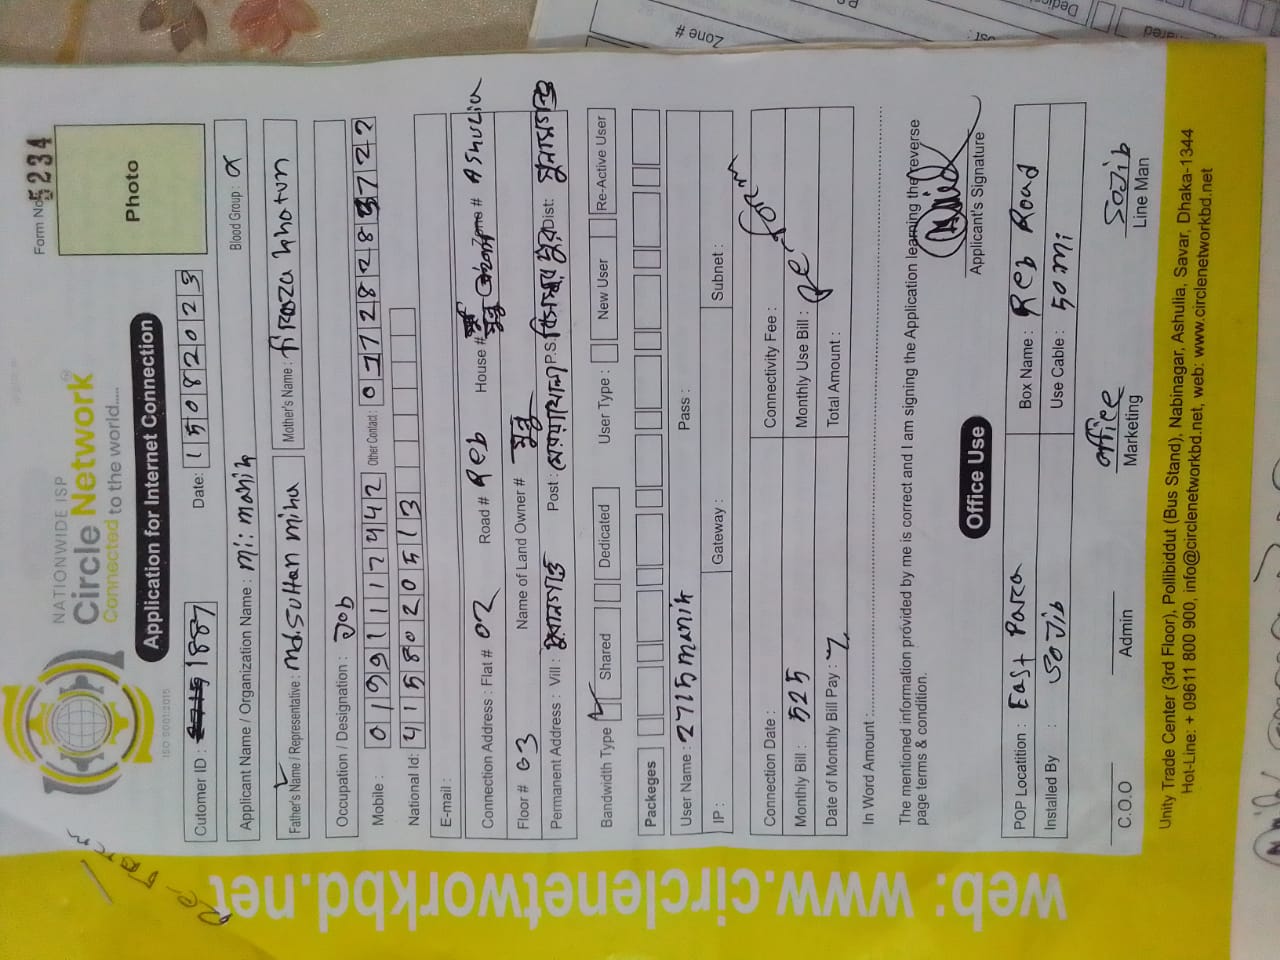 NATIONWIDE ISP
Circle Network
Connected to the world.....
ISO 9001:2015
Form No 5234
Application for Internet Connection
Photo
Cutomer ID : 1887
Date: 15082023
Applicant Name / Organization Name : Mi: manik
Blood Group :
Father's Name / Representative : Md. Sultan miha
Mother's Name : firoza khatun
Occupation / Designation : Job
Mobile : 01991117442 Other Contact : 01728283722
National Id: 4158020513
E-mail :
Connection Address : Flat # 02 Road # Reb House # Zone # Ashulia
Floor # G3 Name of Land Owner #
Permanent Address : Vill : Post : P.S: Dist:
Bandwidth Type Shared Dedicated User Type : New User Re-Active User
Packeges
User Name : 2715manik Pass :
IP : Gateway : Subnet :
Connection Date : Connectivity Fee :
Monthly Bill : 525 Monthly Use Bill : Re-form
Date of Monthly Bill Pay : 7 Total Amount :
In Word Amount :
The mentioned information provided by me is correct and I am signing the Application learning the reverse
page terms & condition.
Applicant's Signature
Office Use
POP Locatition : East Para Box Name : Reb Road
Installed By : Sojib Use Cable : 50 mi
office Sojib
C.O.O Admin Marketing Line Man
Unity Trade Center (3rd Floor), Pollibiddut (Bus Stand), Nabinagar, Ashulla, Savar, Dhaka-1344
Hot-Line: + 09611 800 900, info@circlenetworkbd.net, web: www.circlenetworkbd.net
web: www.circlenetworkbd.net
Re-Form
Zone #